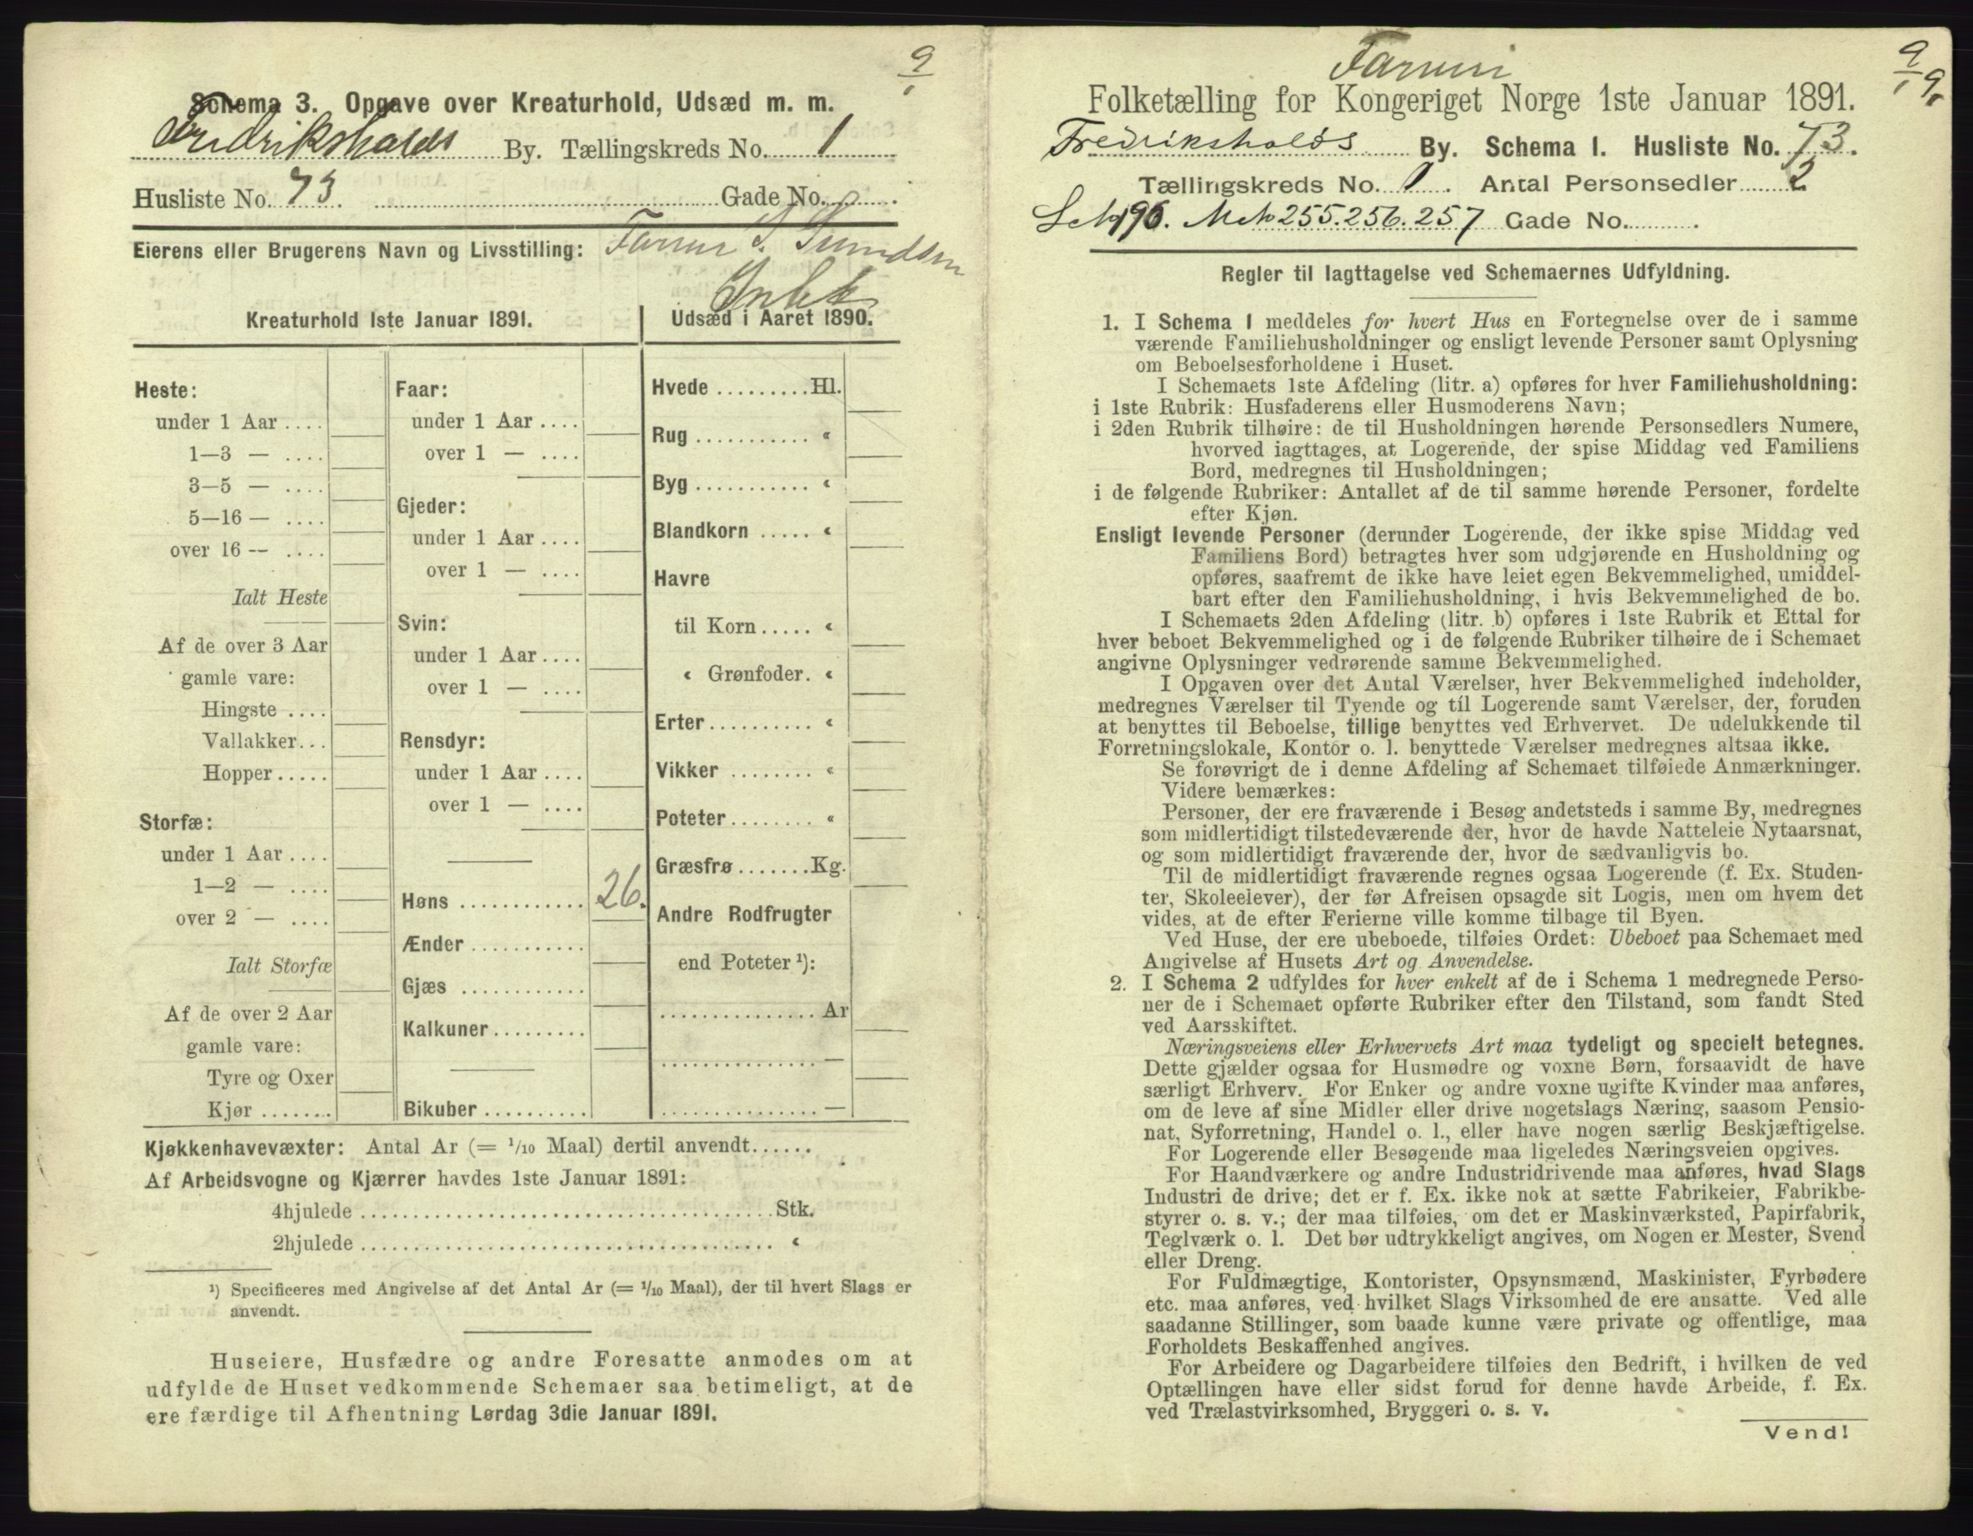 9
Schema 3. Opgave over Kreaturhold, Udsæd m. m.
Fredrikshalds By. Tællingskreds No. 1
Husliste No. 73. Gade No.
Eierens eller Brugerens Navn og Livsstilling:
Kreaturhold 1ste Januar 1891.
Heste:
under 1 Aar ....
1—3 — ....
3—5 — ....
5—16 — ....
over 16 — ....
Ialt Heste
Af de over 3 Aar
gamle vare:
Hingste ....
Vallakker...
Hopper.....
Storfæ:
under 1 Aar ....
1—2 — ....
over 2 — ....
Ialt Storfæ
Af de over 2 Aar
gamle vare:
Tyre og Oxer
Kjør .......
Faar:
under 1 Aar ....
over 1 — ....
Gjeder:
under 1 Aar ....
over 1 — ....
Svin:
under 1 Aar ....
over 1 — ....
Rensdyr:
under 1 Aar ....
over 1 — ....
Høns ............ 26.
Ænder ...........
Gjæs ............
Kalkuner.........
Bikuber ..........
Udsæd i Aaret 1890.
Hvede .........Hl.
Rug ........... «
Byg ........... «
Blandkorn ..... «
Havre
til Korn ..... «
« Grønfoder. «
Erter .......... «
Vikker ........ «
Poteter........ «
Græsfrø .......Kg.
Andre Rodfrugter
end Poteter ¹):
...............Ar
............... —
............... —
Kjøkkenhavevæxter: Antal Ar (= 1/10 Maal) dertil anvendt......
Af Arbeidsvogne og Kjærrer havdes 1ste Januar 1891:
4hjulede ....................................... Stk.
2hjulede ....................................... «
¹) Specificeres med Angivelse af det Antal Ar (= 1/10 Maal), der til hvert Slags er
anvendt.
Huseiere, Husfædre og andre Foresatte anmodes om at
udfylde de Huset vedkommende Schemaer saa betimeligt, at de
ere færdige til Afhentning Lørdag 3die Januar 1891.
9
9
Folketælling for Kongeriget Norge 1ste Januar 1891.
Fredrikshalds By. Schema 1. Husliste No. 73.
Tællingskreds No. 1. Antal Personsedler 2
196. 255.256.257 Gade No. .
Regler til Iagttagelse ved Schemaernes Udfyldning.
1. I Schema 1 meddeles for hvert Hus en Fortegnelse over de i samme
værende Familiehusholdninger og ensligt levende Personer samt Oplysning
om Beboelsesforholdene i Huset.
I Schemaets 1ste Afdeling (litr. a) opføres for hver Familiehusholdning:
i 1ste Rubrik: Husfaderens eller Husmoderens Navn;
i 2den Rubrik tilhøire: de til Husholdningen hørende Personsedlers Numere,
hvorved iagttages, at Logerende, der spise Middag ved Familiens
Bord, medregnes til Husholdningen;
i de følgende Rubriker: Antallet af de til samme hørende Personer, fordelte
efter Kjøn.
Ensligt levende Personer (derunder Logerende, der ikke spise Middag ved
Familiens Bord) betragtes hver som udgjørende en Husholdning og
opføres, saafremt de ikke have leiet egen Bekvemmelighed, umiddel-
bart efter den Familiehusholdning, i hvis Bekvemmelighed de bo.
I Schemaets 2den Afdeling (litr. b) opføres i 1ste Rubrik et Ettal for
hver beboet Bekvemmelighed og i de følgende Rubriker tilhøire de i Schemaet
angivne Oplysninger vedrørende samme Bekvemmelighed.
I Opgaven over det Antal Værelser, hver Bekvemmelighed indeholder,
medregnes Værelser til Tyende og til Logerende samt Værelser, der, foruden
at benyttes til Beboelse, tillige benyttes ved Erhvervet. De udelukkende til
Forretningslokale, Kontor o. l. benyttede Værelser medregnes altsaa ikke.
Se forøvrigt de i denne Afdeling af Schemaet tilføiede Anmærkninger.
Videre bemærkes:
Personer, der ere fraværende i Besøg andetsteds i samme By, medregnes
som midlertidigt tilstedeværende der, hvor de havde Natteleie Nytaarsnat,
og som midlertidigt fraværende der, hvor de sædvanligvis bo.
Til de midlertidigt fraværende regnes ogsaa Logerende (f. Ex. Studen-
ter, Skoleelever), der før Afreisen opsagde sit Logis, men om hvem det
vides, at de efter Ferierne ville komme tilbage til Byen.
Ved Huse, der ere ubeboede, tilføies Ordet: Ubeboet paa Schemaet med
Angivelse af Husets Art og Anvendelse.
2. I Schema 2 udfyldes for hver enkelt af de i Schema 1 medregnede Perso-
ner de i Schemaet opførte Rubriker efter den Tilstand, som fandt Sted
ved Aarsskiftet.
Næringsveiens eller Erhvervets Art maa tydeligt og specielt betegnes.
Dette gjælder ogsaa for Husmødre og voxne Børn, forsaavidt de have
særligt Erhverv. For Enker og andre voxne ugifte Kvinder maa anføres,
om de leve af sine Midler eller drive nogetslags Næring, saasom Pensio-
nat, Syforretning, Handel o. l., eller have nogen særlig Beskjæftigelse.
For Logerende eller Besøgende maa ligeledes Næringsveien opgives.
For Haandværkere og andre Industridrivende maa anføres, hvad Slags
Industri de drive; det er f. Ex. ikke nok at sætte Fabrikeier, Fabrikbe-
styrer o. s. v.; der maa tilføies, om det er Maskinværksted, Papirfabrik,
Teglværk o. l. Det bør udtrykkeligt angives, om Nogen er Mester, Svend
eller Dreng.
For Fuldmægtige, Kontorister, Opsynsmænd, Maskinister, Fyrbødere
etc. maa anføres, ved hvilket Slags Virksomhed de ere ansatte. Ved alle
saadanne Stillinger, som baade kunne være private og offentlige, maa
Forholdets Beskaffenhed angives.
For Arbeidere og Dagarbeidere tilføies den Bedrift, i hvilken de ved
Optællingen have eller sidst forud for denne havde Arbeide, f. Ex.
ved Trælastvirksomhed, Bryggeri o. s. v.
Vend!